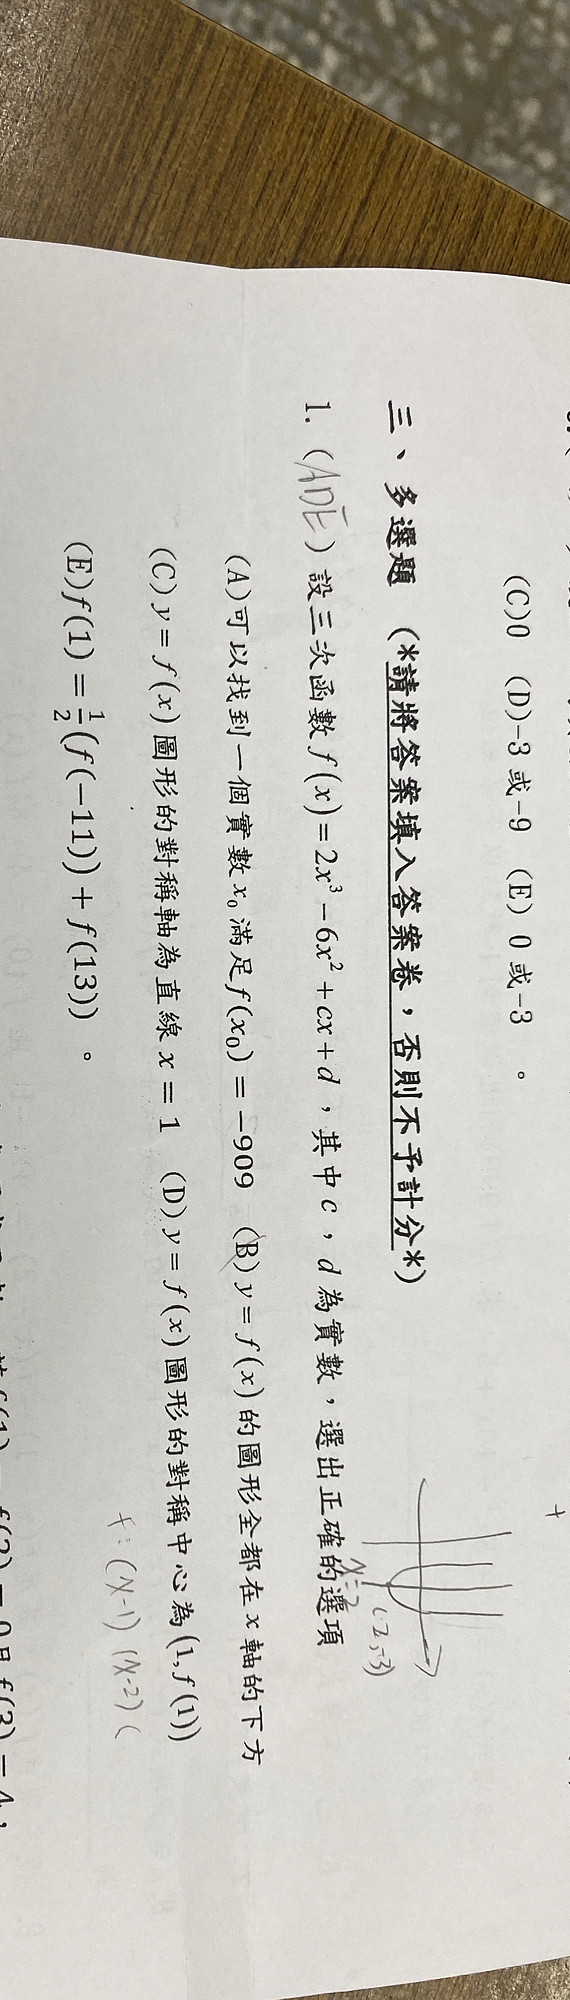 (C)0 (D)-3或-9 (E) 0或-3 。
三、多選題 (*請將答案填入答案卷，否則不予計分*)
1. (ADE) 設三次函數 f(x)=2x³-6x²+cx+d，其中c，d為實數，選出正確的選項
x=2
(2,-3)
(A)可以找到一個實數x₀滿足f(x₀)=-909 (B)y=f(x)的圖形全都在x軸的下方
(C)y=f(x)圖形的對稱軸為直線 x=1 (D)y=f(x)圖形的對稱中心為(1,f(1))
(E)f(1)=½(f(-11))+f(13))。
f:(x-1)(x-2)(
f(1)=f(2)=0且f(3)=4，